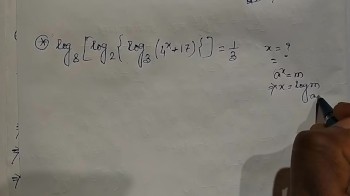 (*) log₈[log₂{log₃(4ˣ+17)}] = 1/3
x = ?
aˣ = m
⇒ x = log m
a